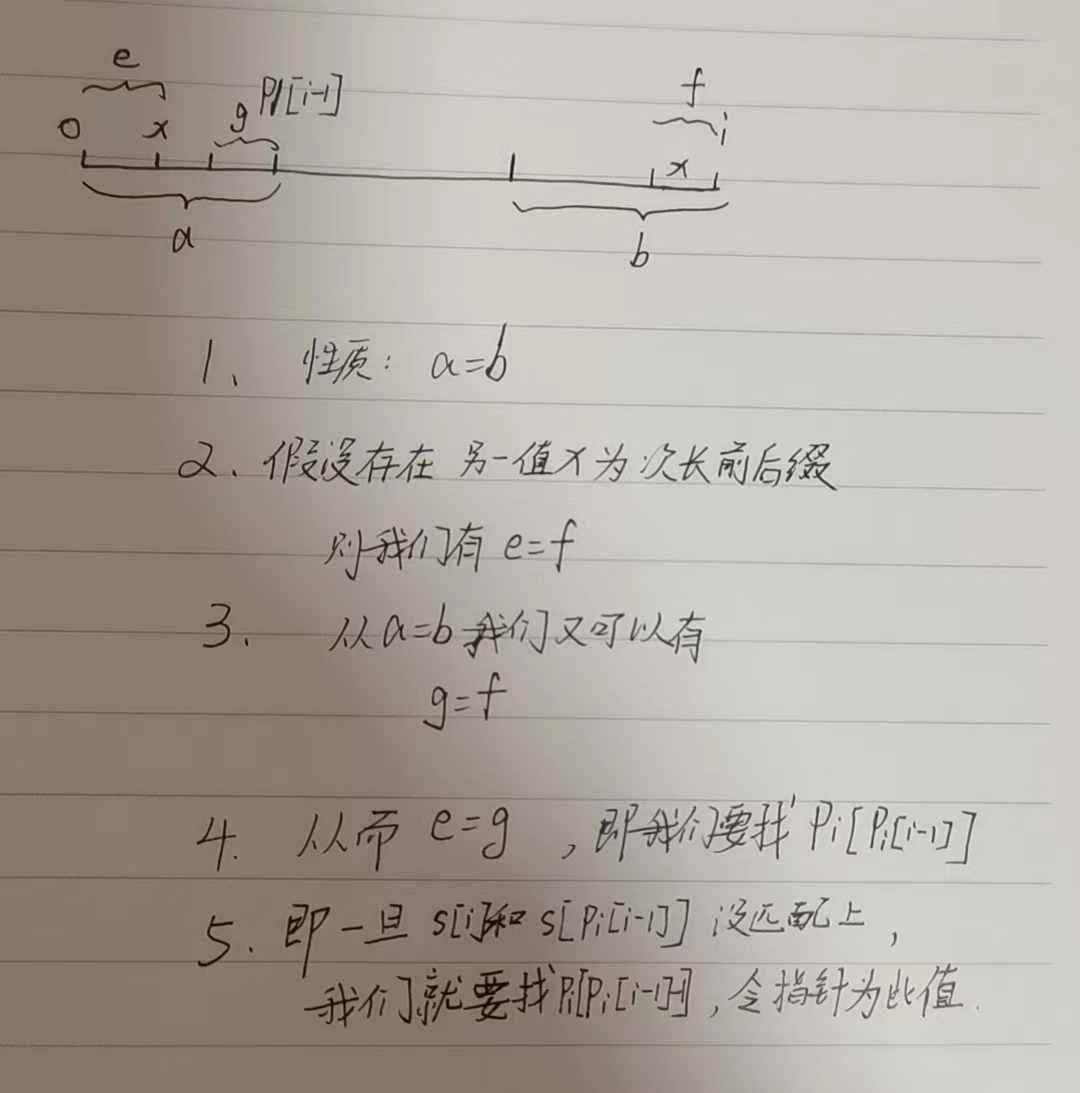 e
f
g Pi[i-1]
0 x i
x
a
b
1、 性质: a=b
2、假设存在 另一值x为次长前后缀
则我们有 e=f
3、 从a=b我们又可以有
g=f
4. 从而 e=g ,即我们要找 Pi[Pi[i-1]]
5. 即一旦 s[i]和 s[Pi[i-1]] 没匹配上,
我们就要找Pi[Pi[i-1]-1],令指针为此值.